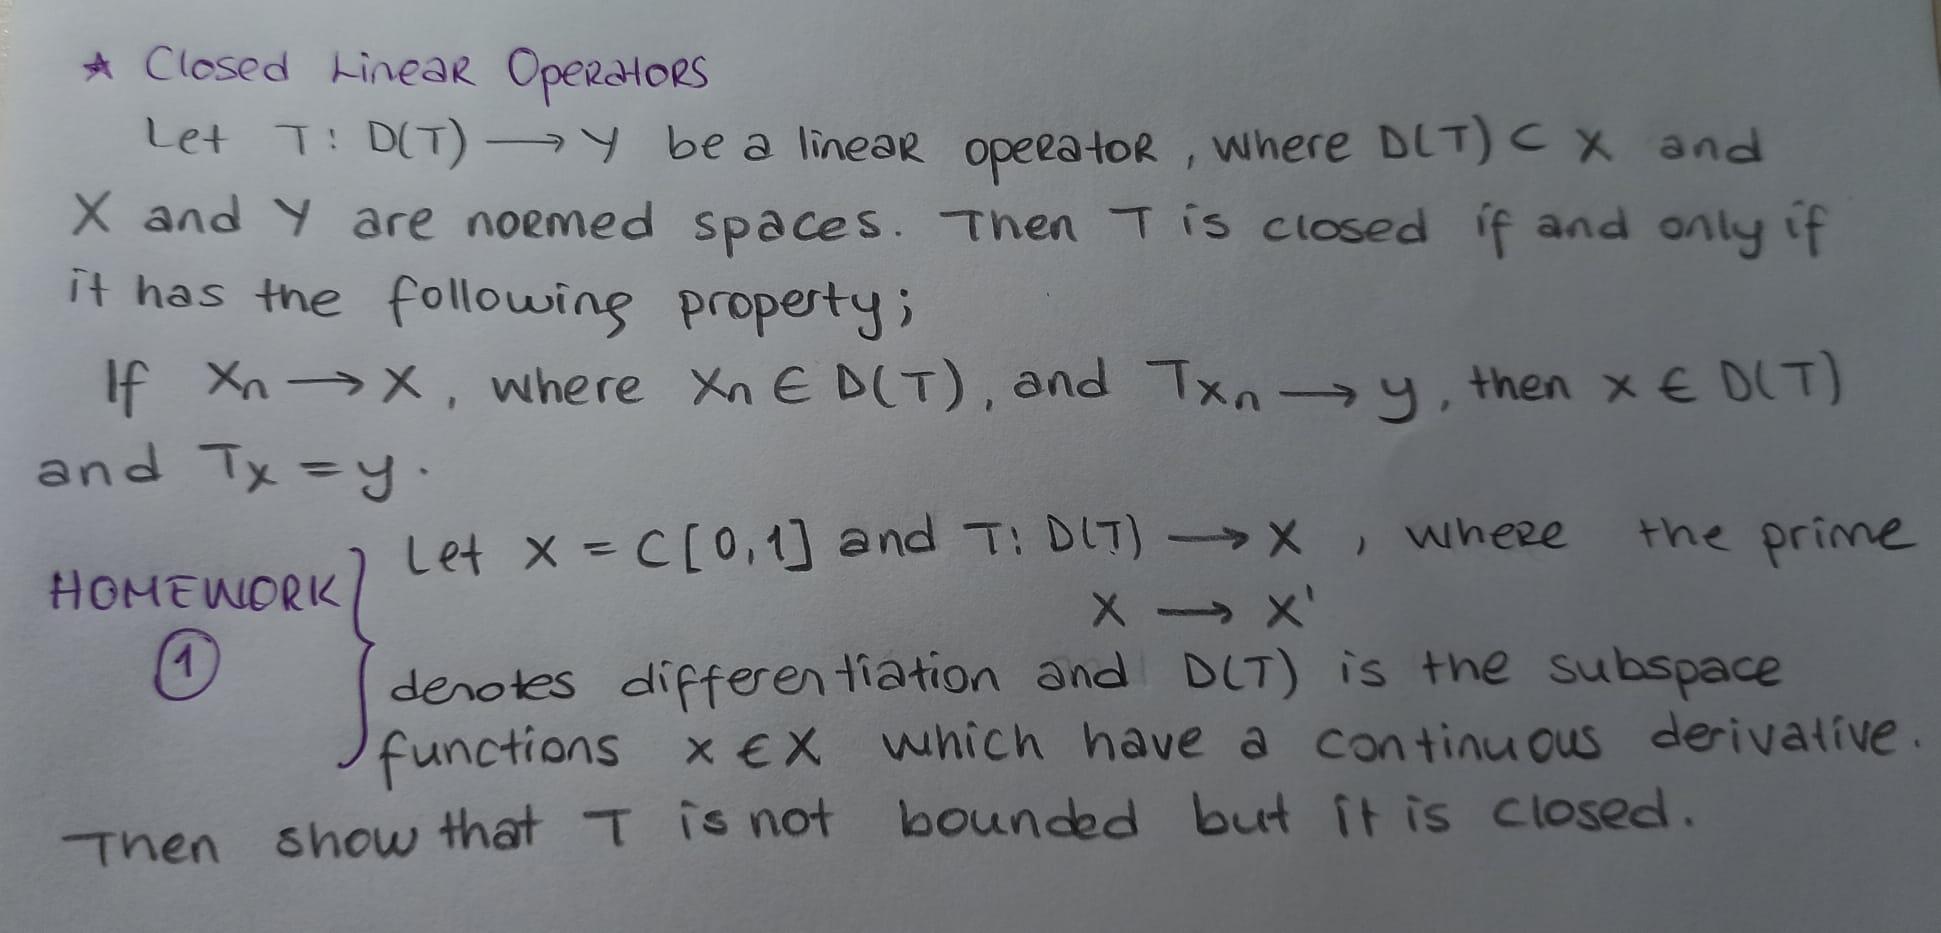 ☆ Closed Linear Operators
Let T: D(T) ⟶ Y be a linear operator, where D(T) ⊂ X and
X and Y are normed spaces. Then T is closed if and only if
it has the following property;
If xn ⟶ x, where xn ∈ D(T), and Txn ⟶ y, then x ∈ D(T)
and Tx = y.
Let X = C[0,1] and T: D(T) ⟶ X, where the prime
HOMEWORK
x ⟶ x'
①
denotes differentiation and D(T) is the subspace
functions x ∈ X which have a continuous derivative.
Then show that T is not bounded but it is closed.